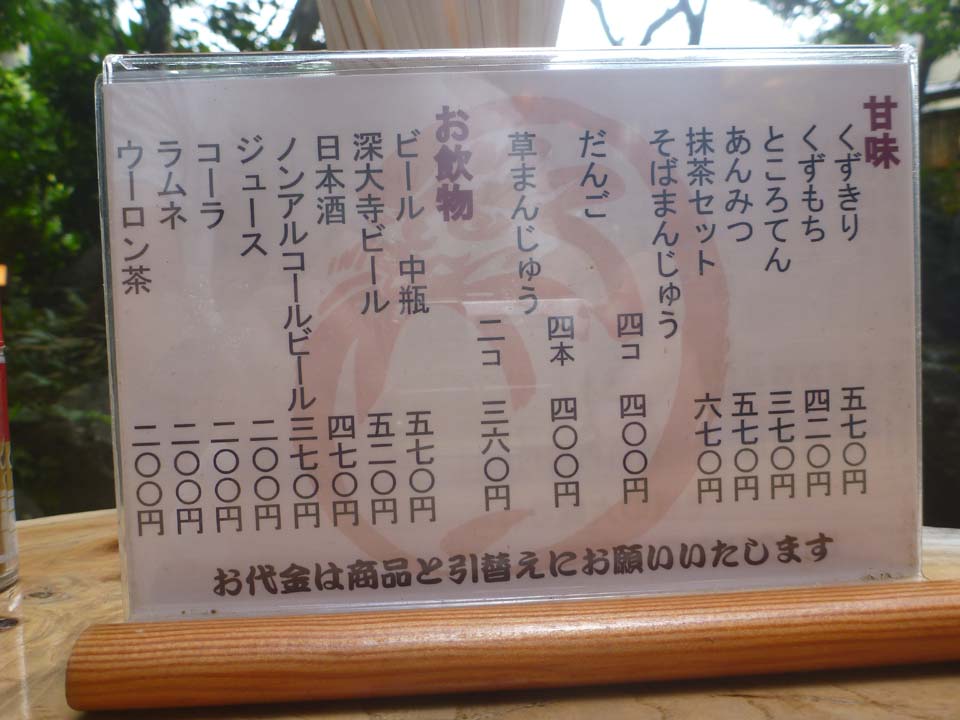 甘味
くずきり 五七〇円
くずもち 四二〇円
ところてん 三七〇円
あんみつ 五七〇円
抹茶セット 六七〇円
そばまんじゅう
四コ 四〇〇円
だんご
四本 四〇〇円
草まんじゅう
二コ 三六〇円
お飲物
ビール 中瓶 五七〇円
深大寺ビール 五二〇円
日本酒 四七〇円
ノンアルコールビール 三七〇円
ジュース 二〇〇円
コーラ 二〇〇円
ラムネ 二〇〇円
ウーロン茶 二〇〇円
お代金は商品と引替えにお願いいたします